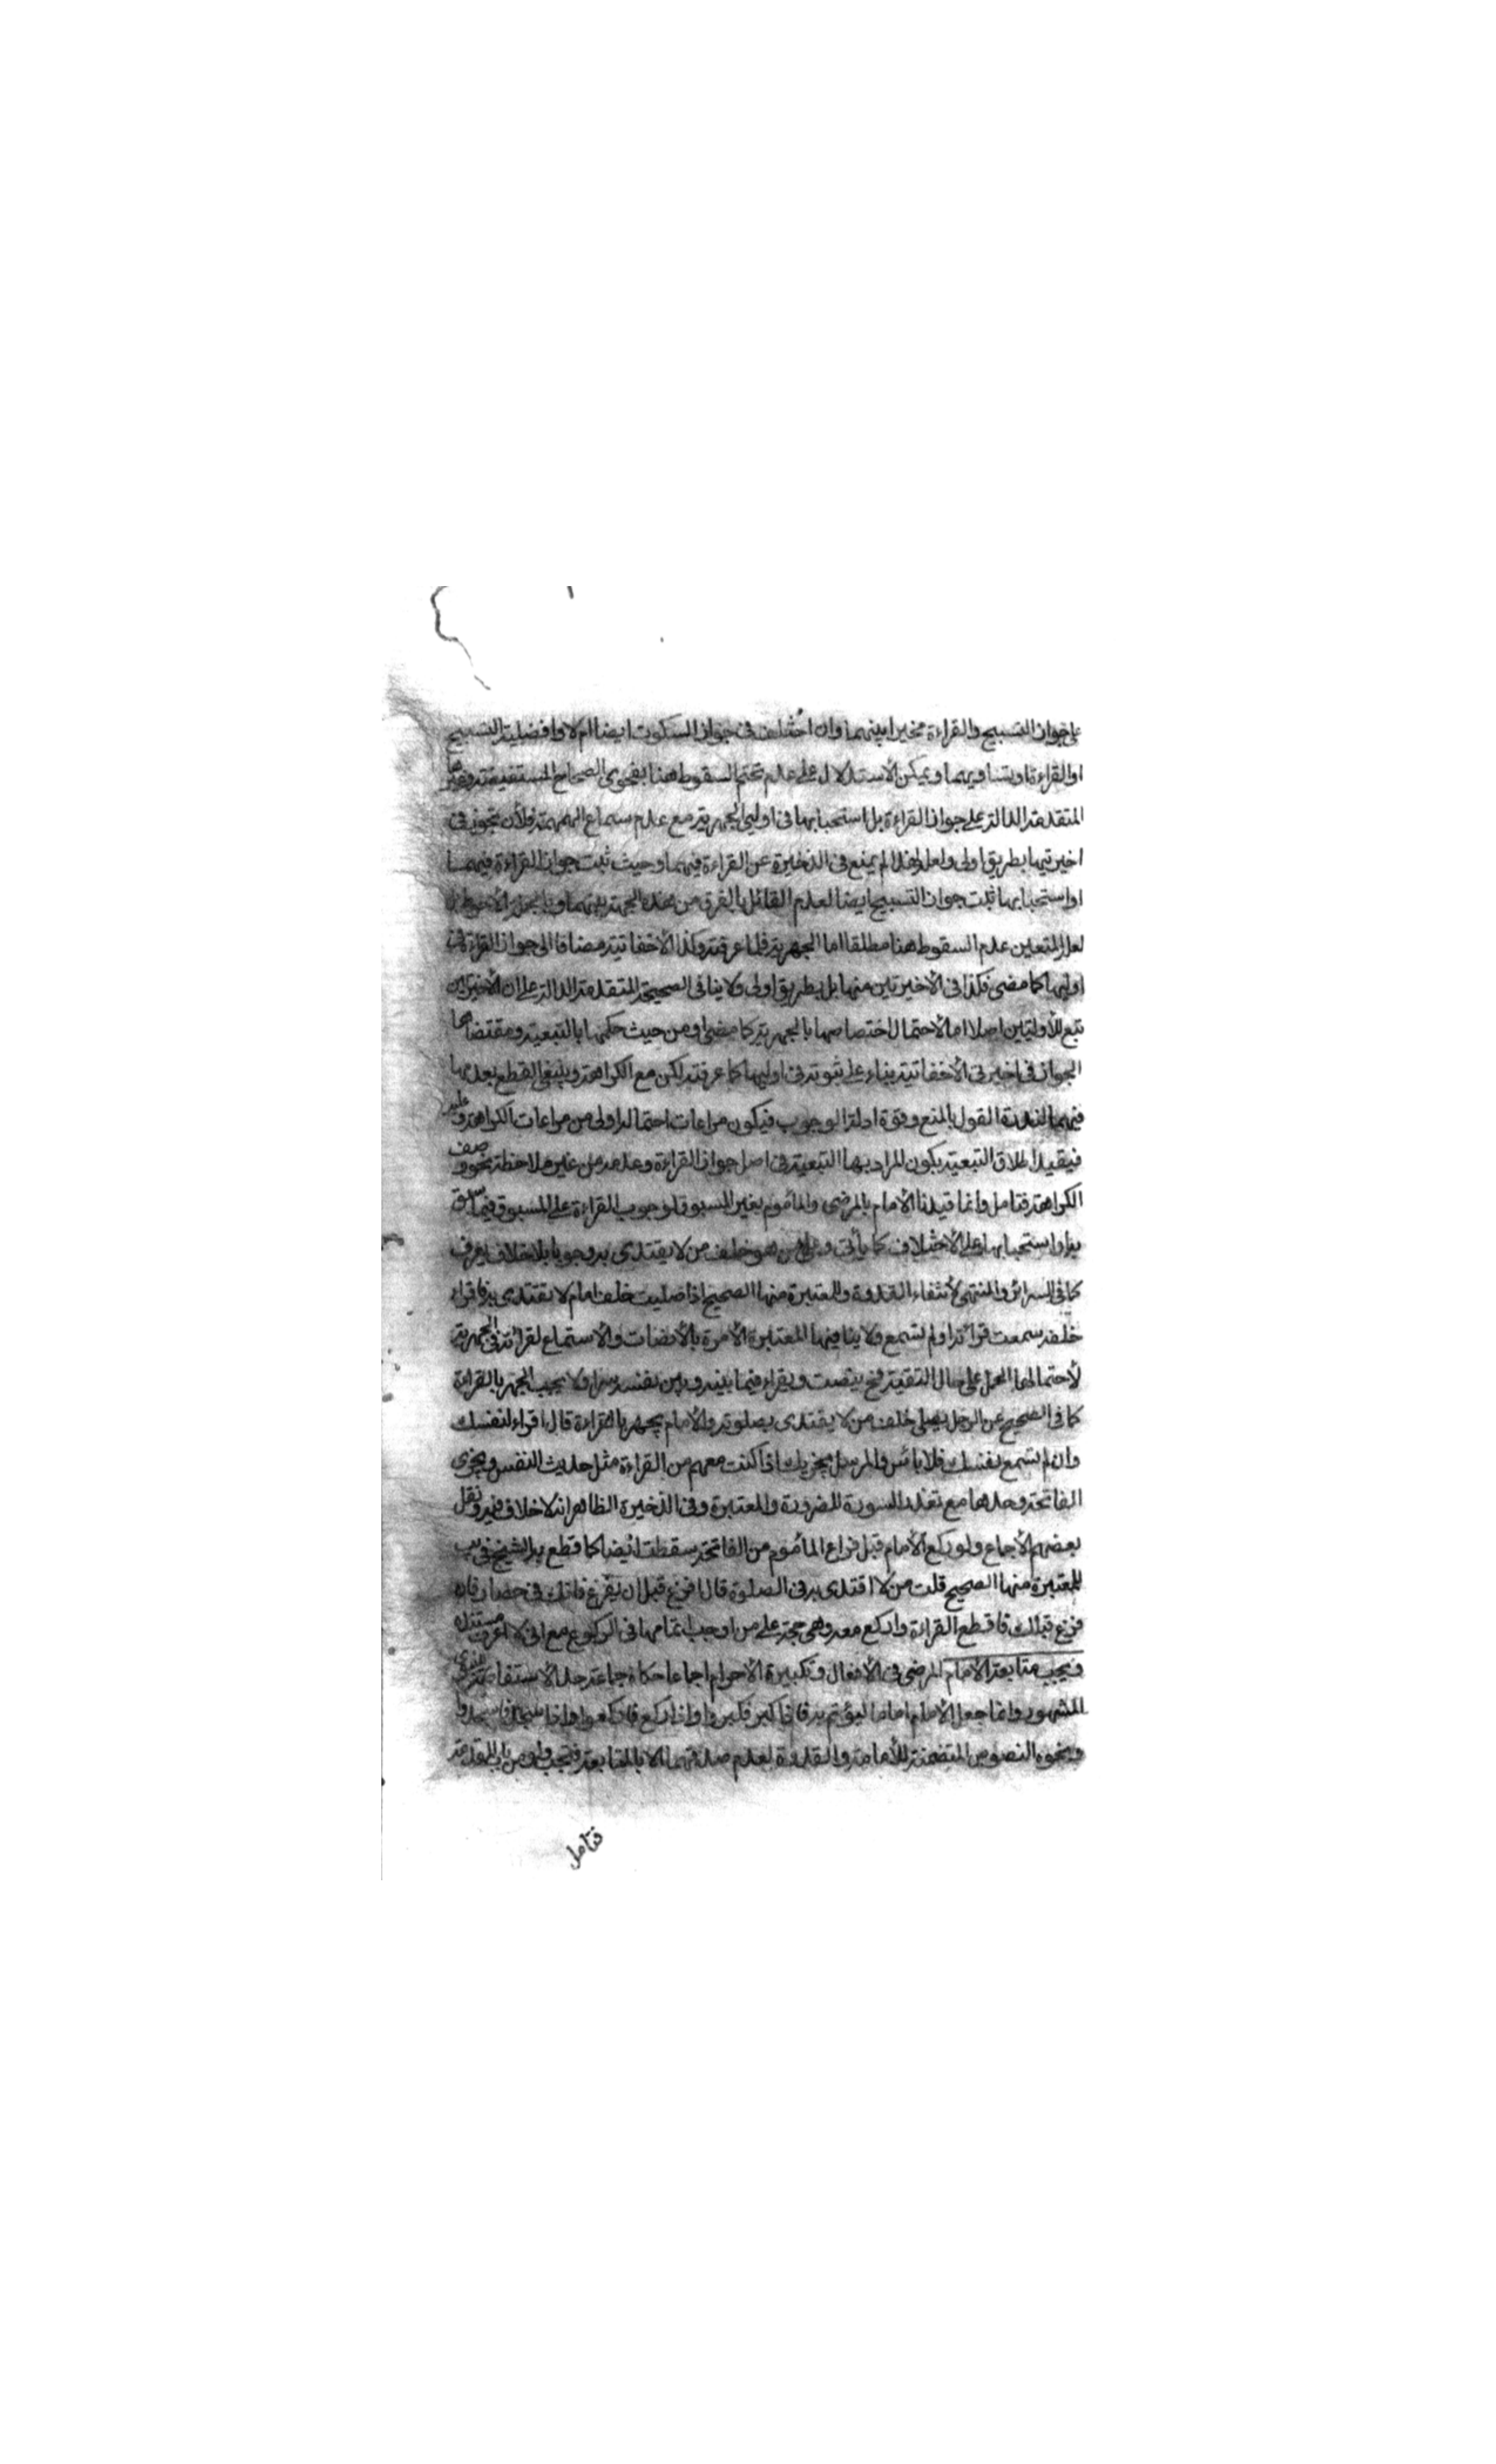 على جواز التسبيح والقراءة مخيرا بينهما وان اختلف في جواز السكوت ايضا ام لا وافضلية التسبيح
او القراءة او تساويهما ويمكن الاستدلال على عدم تحتم السقوط هنا بفحوى الصحاح المستفيضة وغيرها
المتقدمة الدالة على جواز القراءة بل استحبابها في اوليي الجهرية مع عدم سماع الهمهمة فلأن تجوز في
اخيرتيها بطريق اولى ولعله لهذا لم يمنع في الذخيرة عن القراءة فيهما وحيث ثبت جواز القراءة فيهما
او استحبابها ثبت جواز التسبيح ايضا لعدم القائل بالفرق من هذه الجهة بينهما وبالجملة الأحوط بل
لعل المتعين عدم السقوط هنا مطلقا اما الجهرية فلما عرفته وكذا الاخفاتية مضافا الى جواز القراءة في
اوليها كما مضى فكذا في الأخيرتين منها بل بطريق اولى ولا ينافي الصحيحة المتقدمة الدالة على ان الأخيرتين
تبع للأوليتين اصلا اما لاحتمال اختصاصها بالجهرية كما مضى او من حيث حكمها بالتبعية ومقتضاها
الجواز في اخيرتي الأخفاتية بناء على ثبوته في اوليها كما عرفته لكن مع الكراهة وينبغي القطع بعدمها
فيهما لندرة القول بالمنع وقوة ادلة الوجوب فيكون مراعات احتماله اولى من مراعات الكراهة وعليه
فيقيد اطلاق التبعية بكون المراد بها التبعية في اصل جواز القراءة وعدمه من غير ملاحظة نحو وصف
الكراهة فتامل وانما قيدنا الأمام بالمرضي والمأموم بغير المسبوق لوجوب القراءة على المسبوق فيما سبق
به او استحبابها على الأختلاف كما يأتي وعلى من هو خلف من لا يقتدى به وجوبا بلا خلاف يعرف
كما في السرائر والمنتهى لأنتفاء القدوة وللمعتبرة منها الصحيح اذا صليت خلف امام لا تقتدى به فاقراء
خلفه سمعت قرائته او لم تسمع ولا ينافيها المعتبرة الامرة بالأنصات والأستماع لقرائته في الجهرية
لأحتمالها الحمل على حال التقية فح ينصت ويقراء فيما بينه وبين نفسه سرا ولا يجب الجهر بالقراءة
كما في الصحيح عن الرجل يصلى خلف من لا يقتدى بصلوته والأمام يجهر بالقراءة قال اقراء لنفسك
وان لم تسمع نفسك فلا بائس والمرسل يجزيك اذا كنت معهم من القراءة مثل حديث النفس ويجزى
الفاتحة وحدها مع تعذر السورة للضرورة والمعتبرة وفي الذخيرة الظاهر انه لا خلاف فيه ونقل
بعضهم الأجماع ولو ركع الأمام قبل فراغ المأموم من الفاتحة سقطت ايضا كما قطع به الشيخ في يب
للمعتبرة منها الصحيح قلت من لا اقتدى به في الصلوة قال افرغ قبل ان يفرغ فانك في حصار فان
فرغ قبلك فاقطع القراءة واركع معه وهي حجة على من اوجب اتمامها في الركوع مع اني لا اعرف مستنده
ويجب متابعة الأمام المرضي في الأفعال وتكبيرة الأحرام اجماعا حكاه جماعة حد الاستفاضة
المشهور وانما جعل الأمام اماما ليؤتم به فاذا كبر فكبروا واذا ركع فاركعوا واذا سجد فاسجدوا
ونحوه النصوص المتضمنة للأمامة والقدوة لعدم صدقهما الا بالمتابعة فتجب ولو من باب المقدمة
فتامل